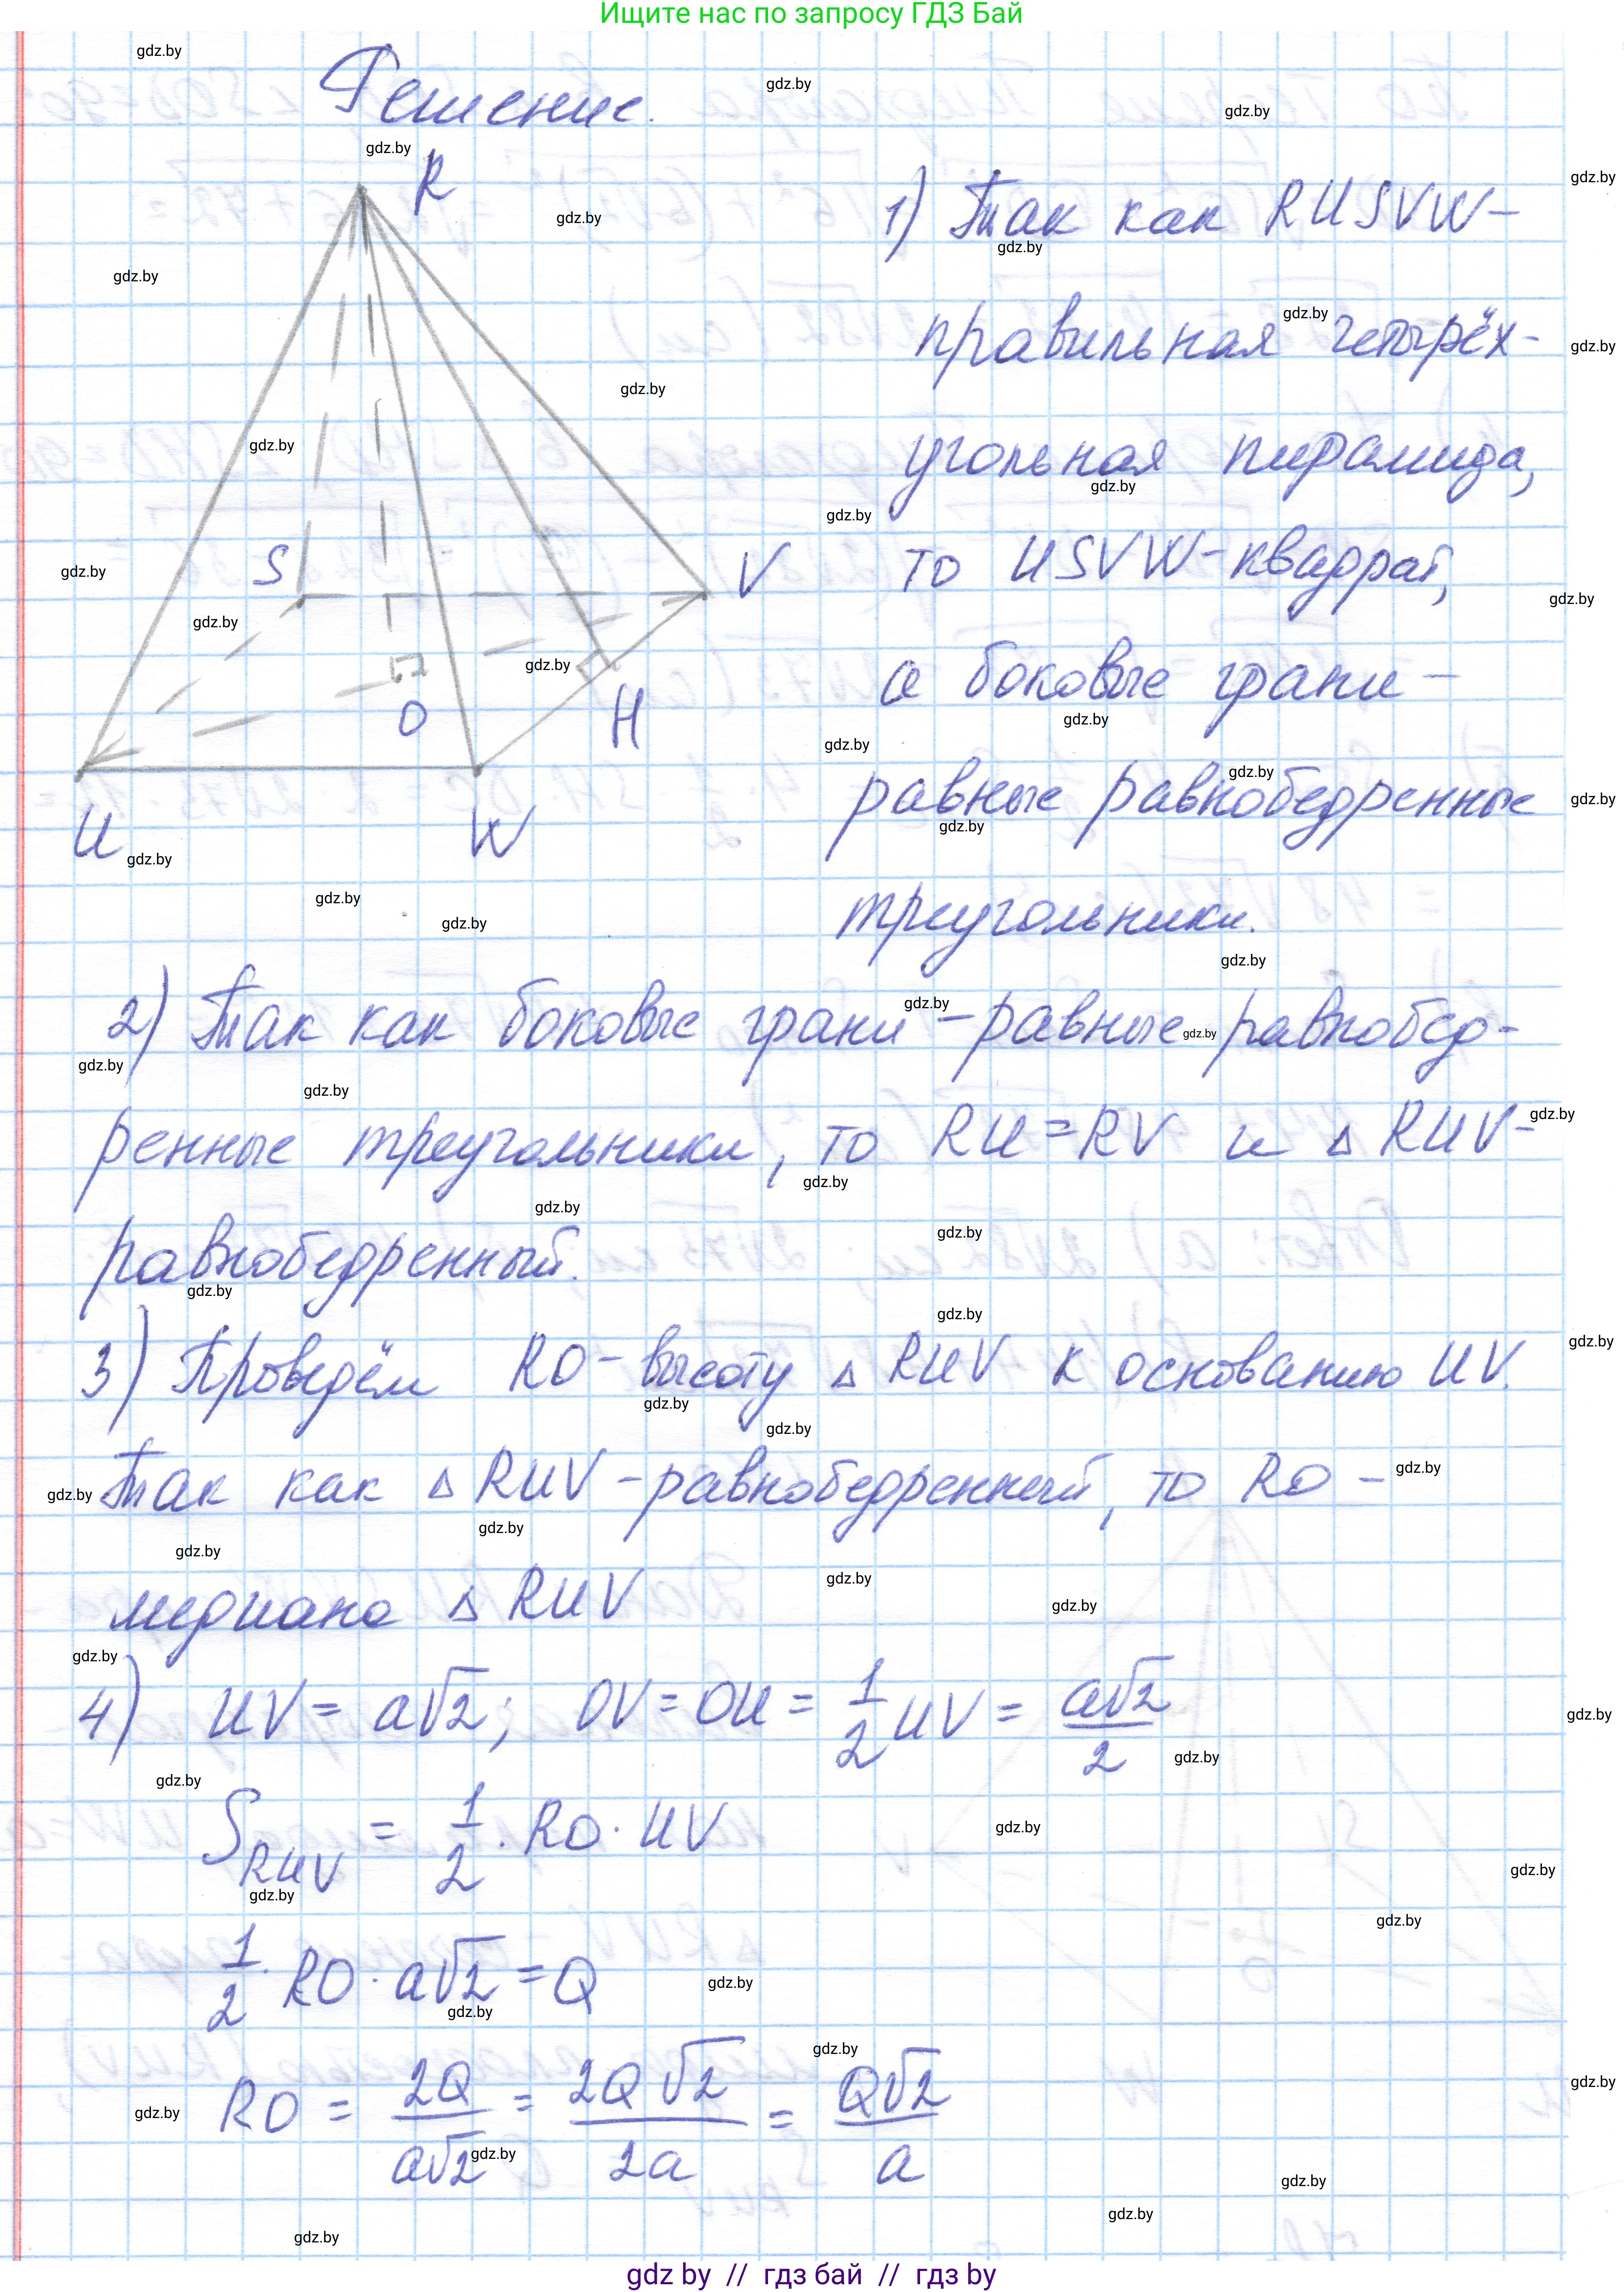 Ищите нас по запросу ГДЗ Бай
Решение.
R
S
V
O
H
U
W
1) Так как RUSVW-
правильная четырёх-
угольная пирамида,
то USVW-квадрат,
а боковые грани -
равные равнобедренные
треугольники.
2) Так как боковые грани - равные равнобед-
ренные треугольники, то RU=RV и △ RUV-
равнобедренный.
3) Проведём RO - высоту △ RUV к основанию UV.
Так как △ RUV - равнобедренный, то RO -
медиана △ RUV
4) UV = a√2; OV = OU = 1/2 UV = a√2/2
S RUV = 1/2 · RO · UV
1/2 · RO · a√2 = Q
RO = 2Q/a√2 = 2Q√2/2a = Q√2/a
gdz by // гдз бай // гдз by
gdz.by